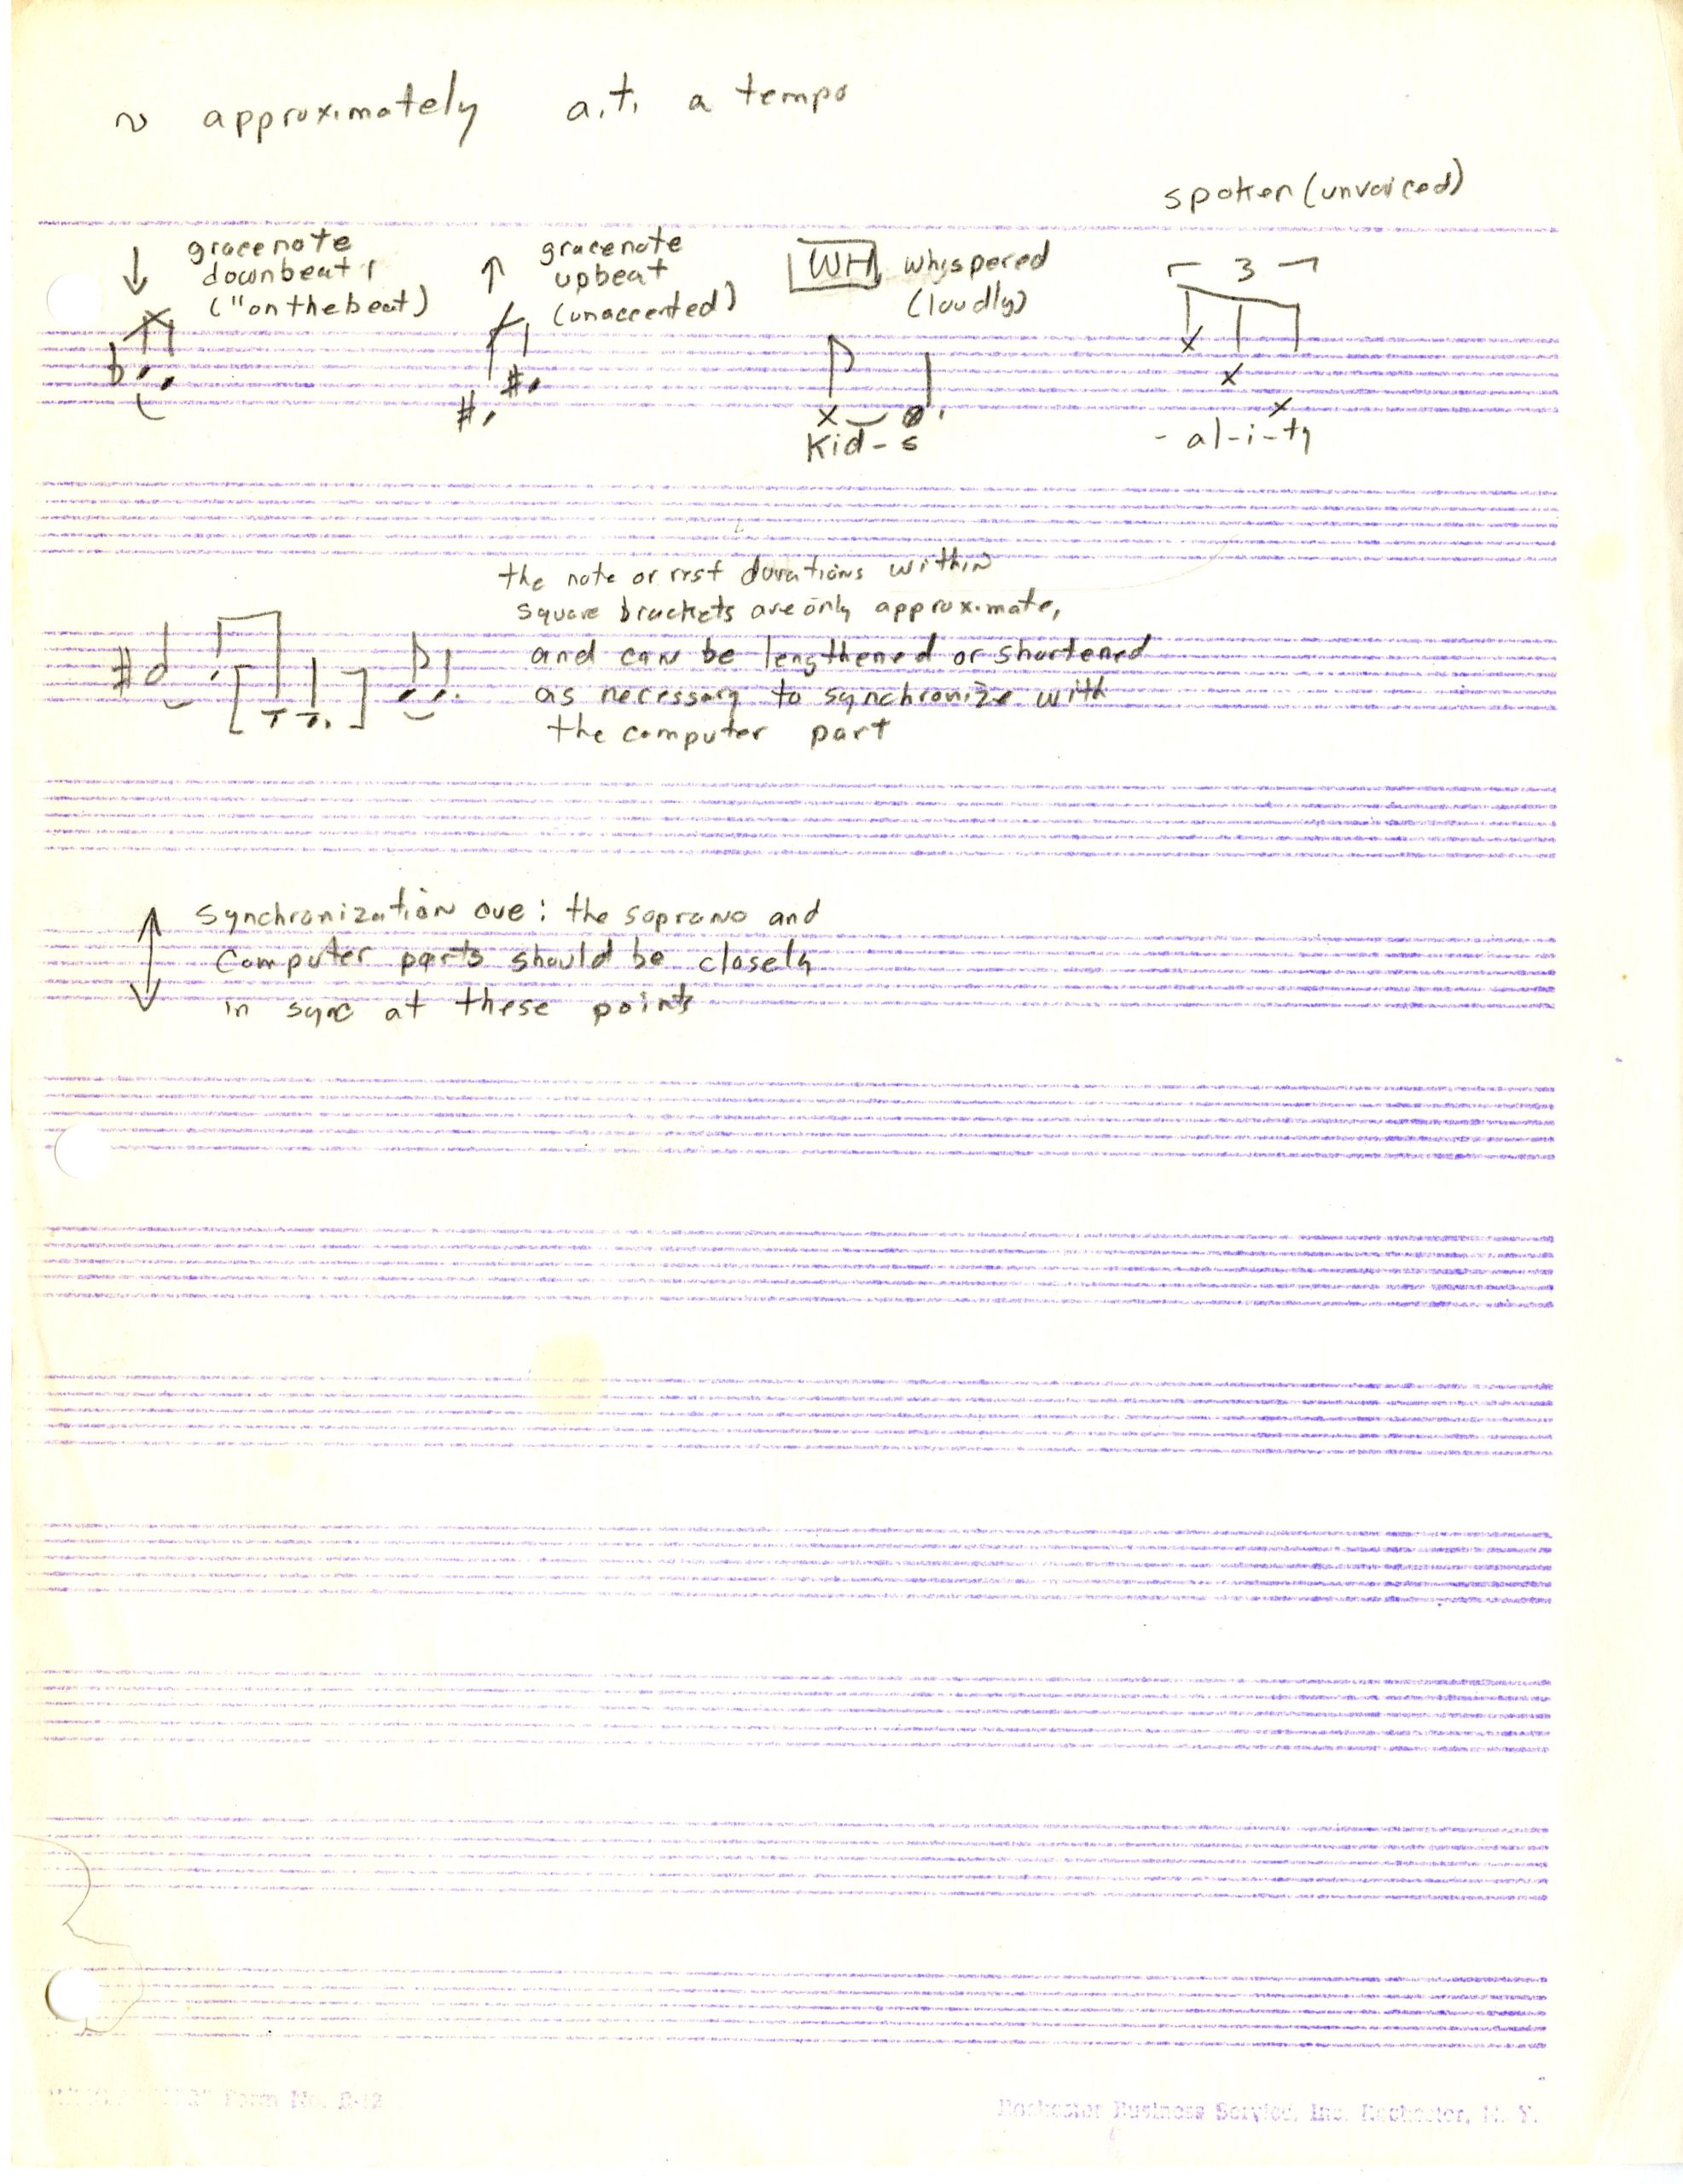 ~ approximately a.t. a tempo
spoken (unvoiced)
↓ gracenote
downbeat
("on the beat)
↑ gracenote
upbeat
(unaccented)
WH whispered
(loudly)
3
Kid-s
- al-i-ty
the note or rest durations within
square brackets are only approximate,
and can be lengthened or shortened
as necessary to synchronize with
the computer part
↕ Synchronization cue: the soprano and
Computer parts should be closely
in sync at these points
Form No. B-12
Rochester Business Service, Inc. Rochester, N. Y.